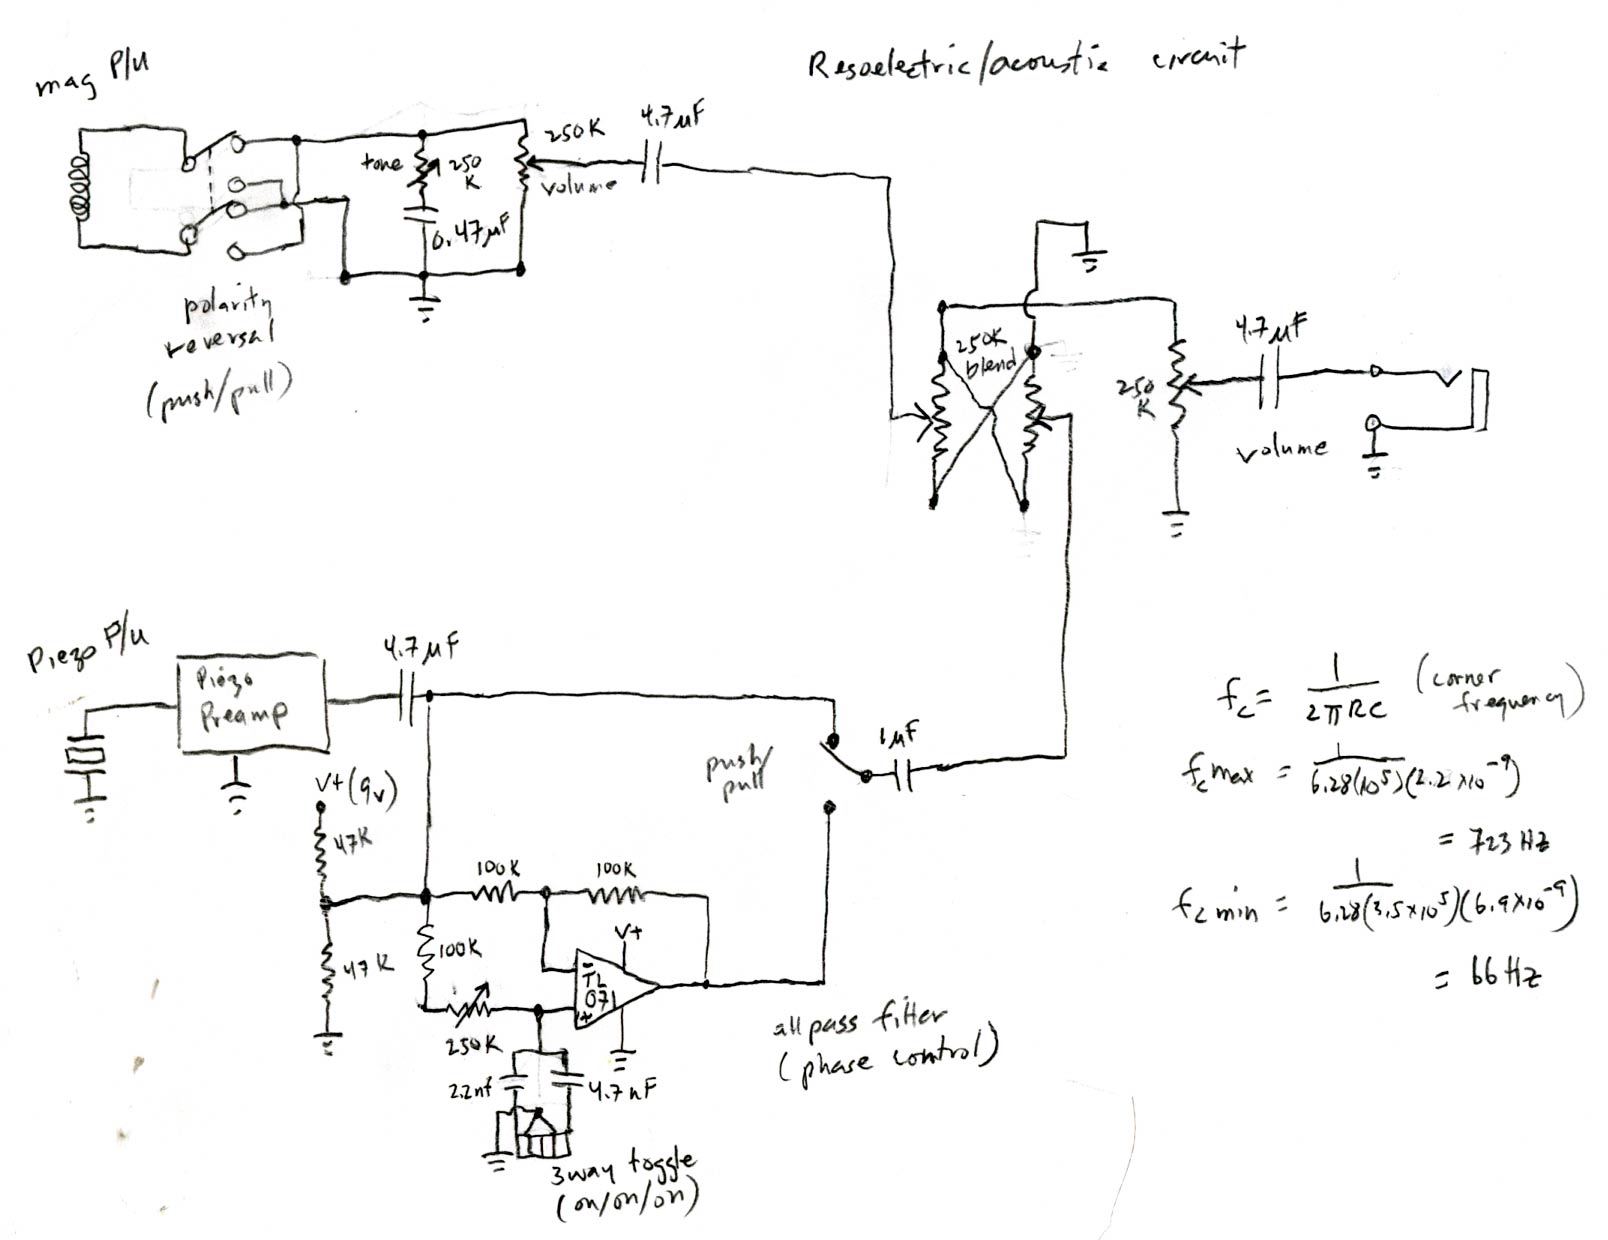 Resoelectric/acoustic circuit
mag P/U
4.7µF
250K
volume
tone
250
K
0.47µF
polarity
reversal
(push/pull)
250K
blend
250
K
volume
4.7µF
Piezo P/U
Piezo
Preamp
4.7µF
V+(9v)
47K
47K
100K
100K
100K
250K
V+
-
TL
071
+
2.2nf
4.7nF
3way toggle
(on/on/on)
push/
pull
1µF
all pass filter
(phase control)
fc = 1/2πRC (corner
frequency)
fc max = 1/6.28(10⁵)(2.2x10⁻⁹)
= 723 Hz
fc min = 1/6.28(3.5x10⁵)(6.9x10⁻⁹)
= 66 Hz